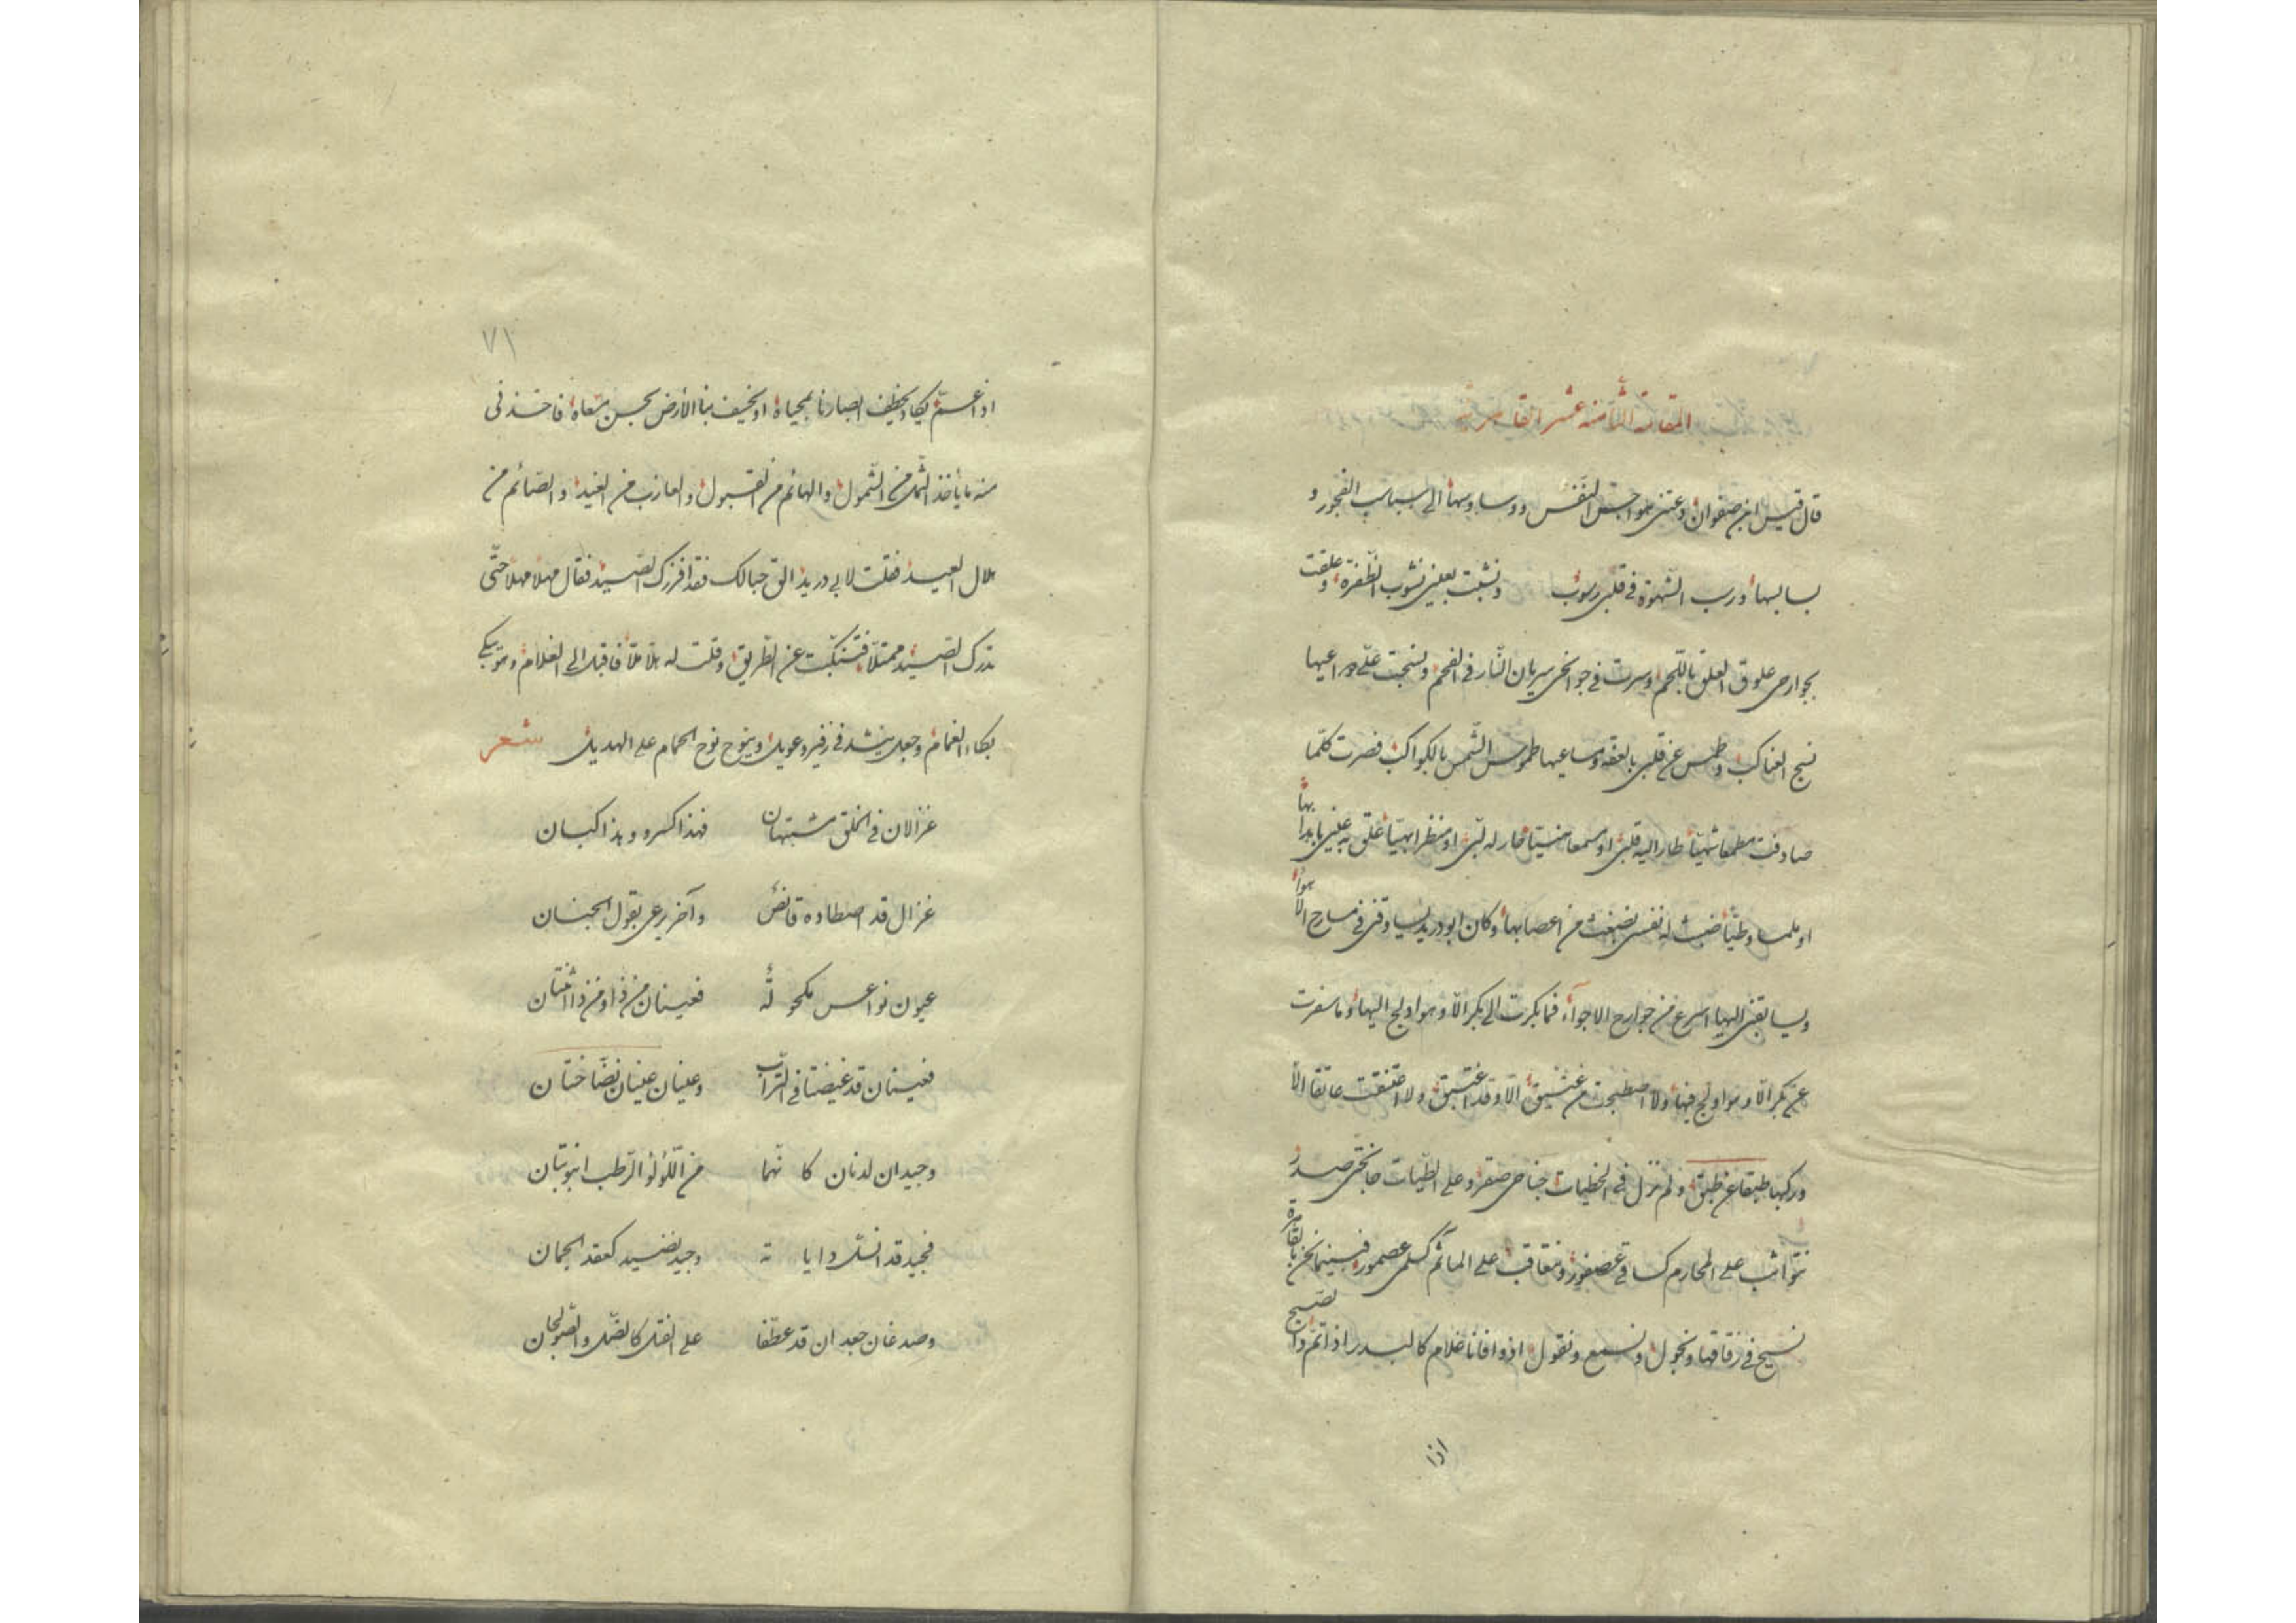 المقامة الثامنة عشر القاهرية
قال قيس ابن صفوان دعتنى هواجس النفس ووساوسها الى سباسب الفجور و
بسابسها ورسب الشهوة فى قلبى رسوب ونشبت بعينى نشوب الظفرة وعلقت
بجوارحى علوق العلق باللحم وسرت فى جوانحى سريان النار فى الفحم ونسجت على دواعيها
نسج العناكب وطمس عن قلبى بالعفة مساعيها طموس الشمس بالكواكب فصرت كلما
صادفت مطمعا شهيا طار اليه قلبى او مسمعا حار له لبى او منظرا بهيا علق به عينى باهدابها
او ملمسا وطيا ضبثت له نفسى من اعصابها وكان ابو دريد يساوقنى فى مسارح الاهواء
ويسابقنى اليها اسرع من جوارح الاجواء فما بكرت الى بكر الا وهو اولج اليها وما سفرت
عن بكر الا وهو اولج فيها ولا اصطبحت من الا وقد اغتبق ولا اعتنقت عاتقا الا
وركبها طبقا عن طبق ولم نزل فى الخطيات جناحى صقر وعلى الطيات جانحتى صدر
نتواثب على المحارم كساقى عصفور ونتعاقب على المآثم فبينما نحن بالقاهرة
نسيح فى زقاقها ونجول ونسمع ونقول اذ وافانا غلام كالبدر اذا تم والصبح
اذا
٧١
اذا عسم يكاد يخطف ابصارنا بمحياه او يخسف بنا الارض بحسن فاخذنى
منه ما يأخذ الثمل من الشمول والهائم من القبول والعازب من الغيد والصائم من
هلال العيد فقلت لابى دريد الق حبالك فقد افرزك الصيد فقال مهلا مهلا حتى
تدرك الصيد ممتلا فتنكبت عن الطريق وقلت له هلا هلا فاقبل الى الغلام وهو يبكى
بكاء الغمام وجعل ينشد فى زفير وعويل وينوح نوح الحمام على الهديل شعر
غزالان فى الخلق مشتبهان فهذا كسير وهذا كبان
غزال قد اصطاده قانص وآخر يرعى بقول الجنان
عيون نواعس مكحولة فعينان من ذا ومن ذا اثنتان
فعينان قد غيضتا فى التراب وعينان عينان نضاختان
وجيدان لدنان كانهما من اللؤلؤ الرطب انبوبتان
فجيد قد انسل وجيد نضيد كعقد الجمان
وصدغان جعدان قد عطفا على الفتل كالصل والصولجان